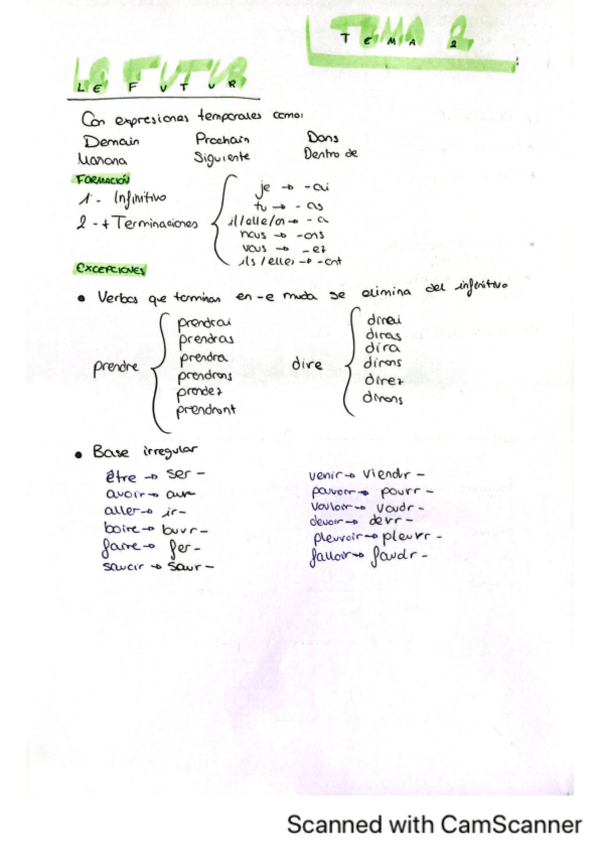 TEMA 2
LE FUTUR
Con expresiones temporales como:
Demain Prochain Dans
Mañana Siguiente Dentro de
FORMACIÓN
1- Infinitivo
2-+ Terminaciones
je → -ai
tu → -as
il/elle/on → -a
nous → -ons
vous → -ez
ils/elles → -ont
EXCEPCIONES
• Verbos que terminan en -e muda se elimina del infinitivo
prendre
prendrai
prendras
prendra
prendrons
prendez
prendront
dire
dirai
diras
dira
dirons
direz
dirons
• Base irregular
être → ser-
avoir → aur-
aller → ir-
boire → buvr-
faire → fer-
savoir → saur-
venir → viendr-
pouvoir → pourr-
vouloir → voudr-
devoir → devr-
pleuvoir → pleuvr-
falloir → faudr-
Scanned with CamScanner